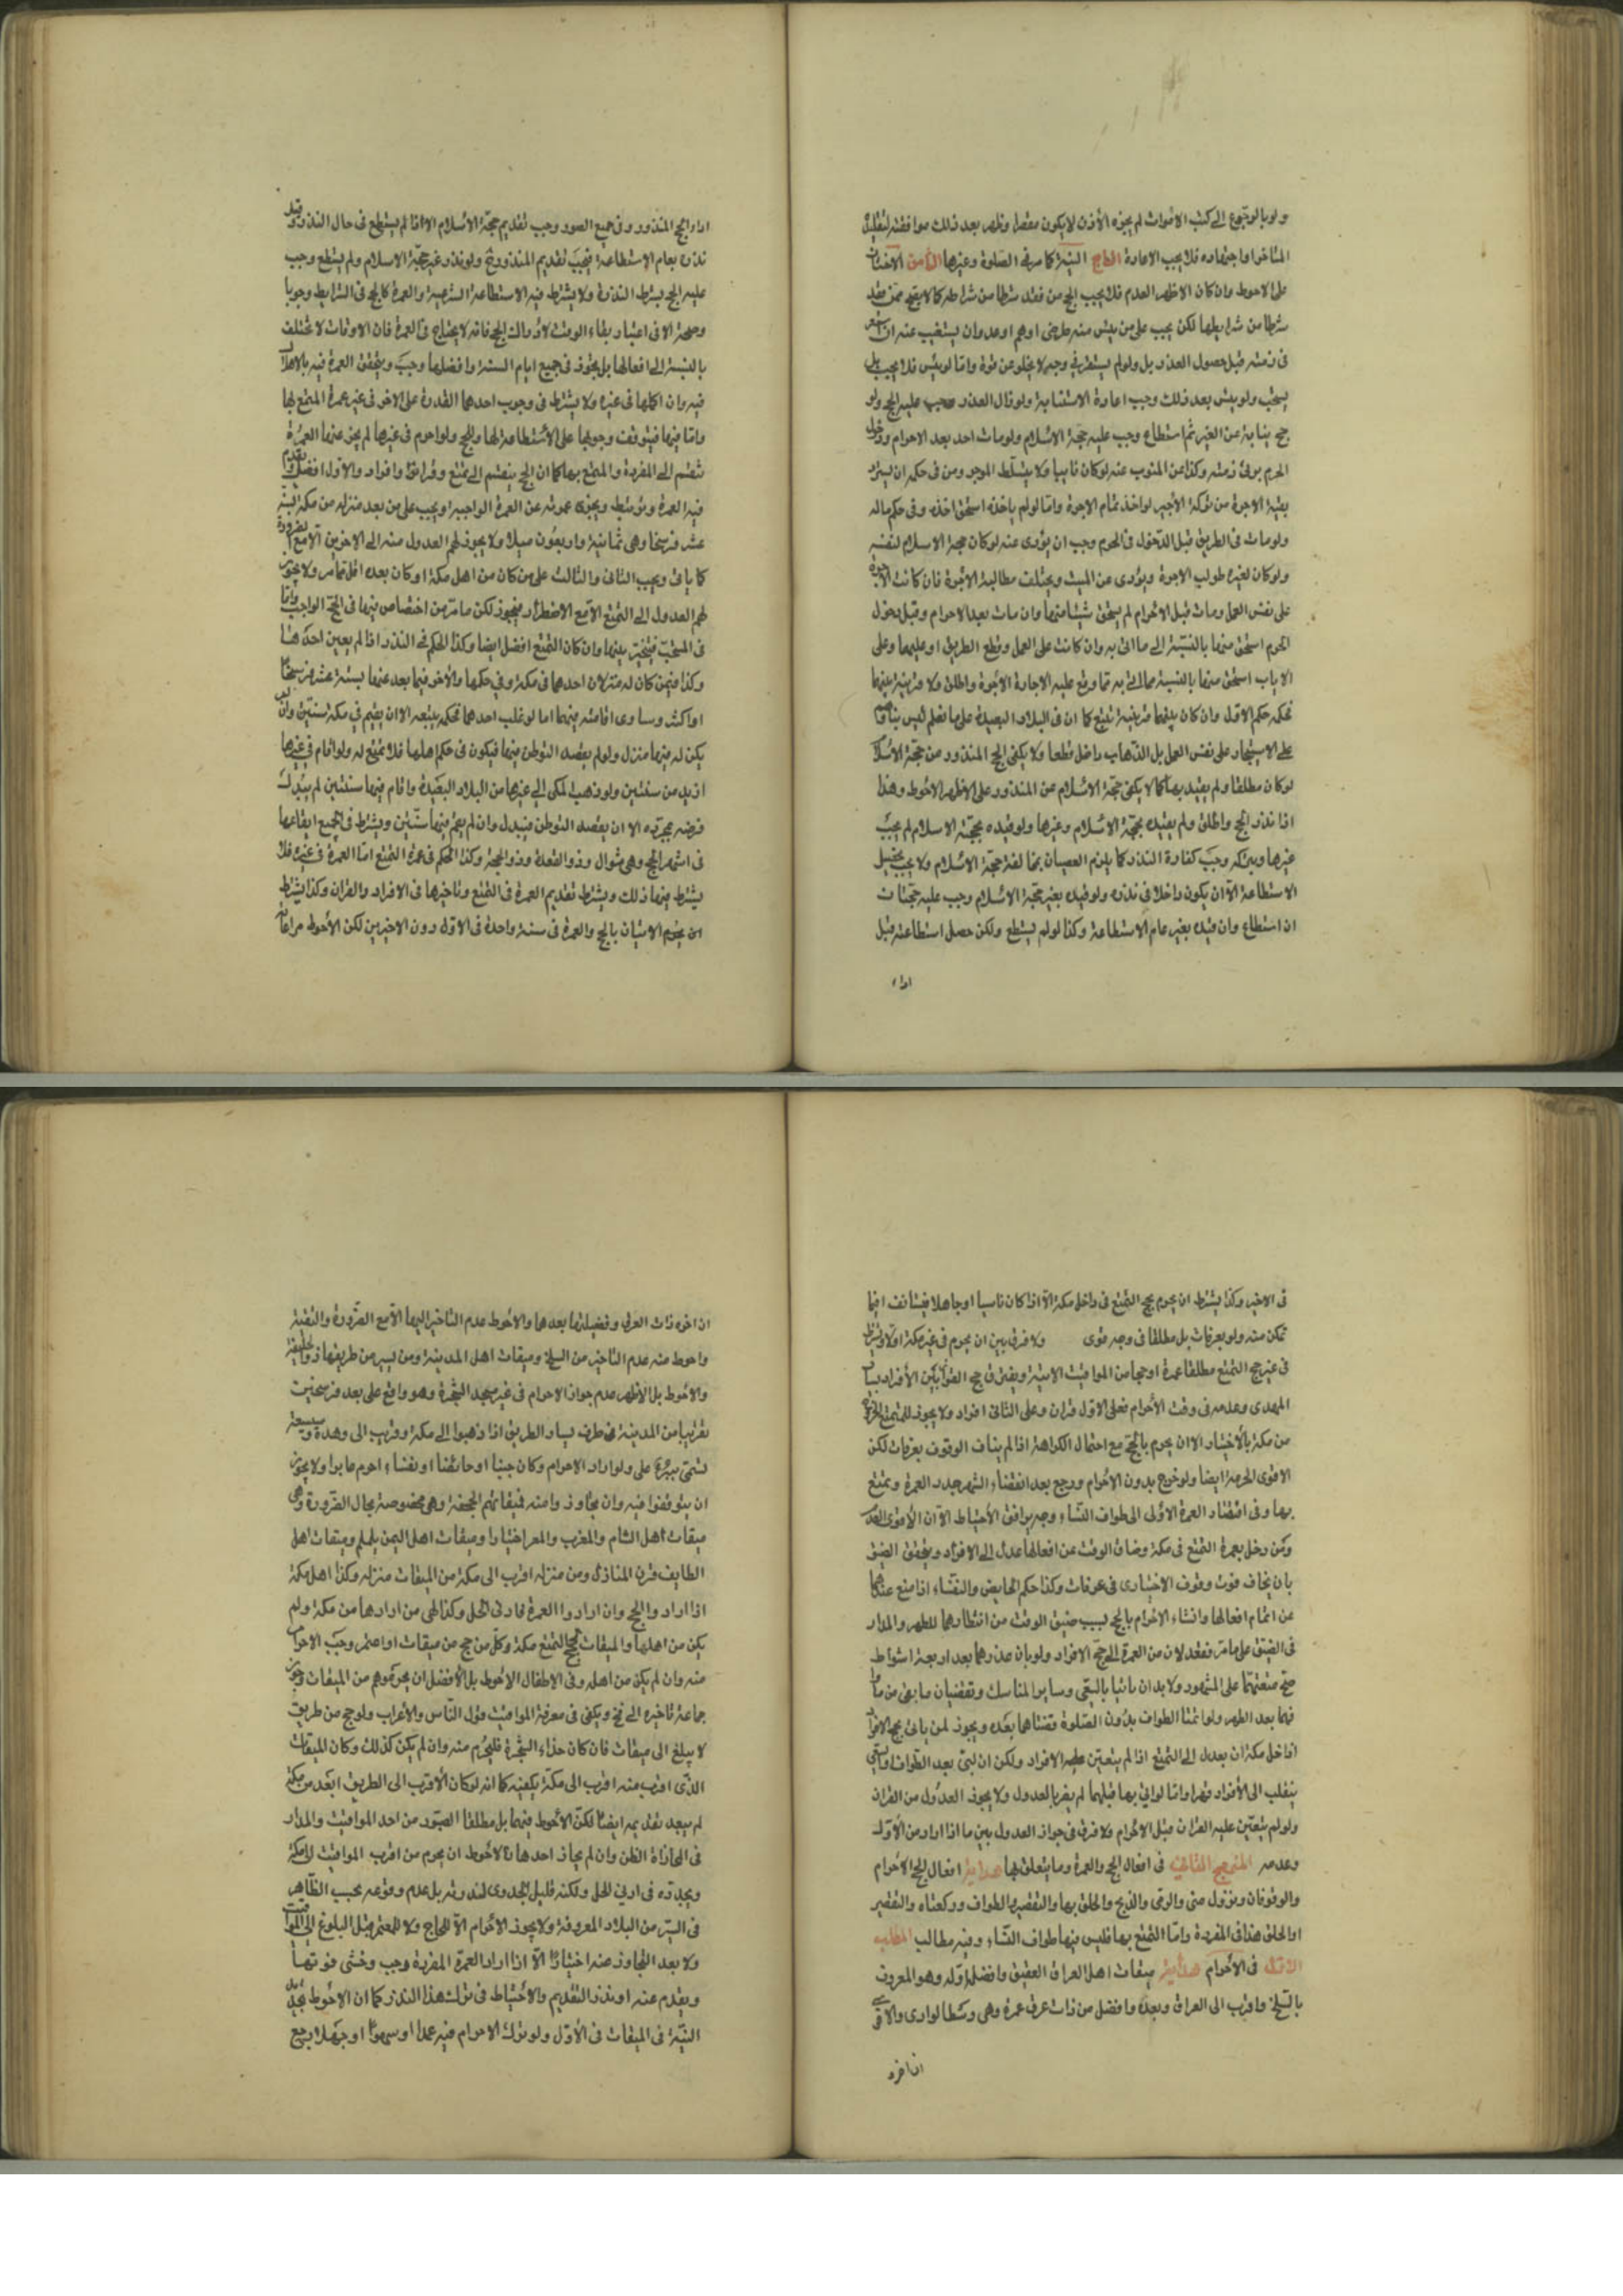 ولو بالرجوع الى كتب الاموات لم يجزه الا ان لا يكون مقصرا وظهر بعد ذلك موافقته لتقليده
المتأخر او اجتهاده فلا يجب الاعادة السابع النية كما مر في الصلوة وغيرها الثامن الاختيار
على الاحوط وان كان الاظهر العدم فلا يجب الحج من فقد شرطا من شرائطه كما لا يقع ممن فقد
شرطا من شرايطها لكن يجب على من يئس منه لمرض او هرم او عدو ان يستنيب عنه ان استقر
في ذمته قبل حصول العذر بل ولو لم يستقر في وجه لا يخلو عن قوة واما لو لم ييئس فلا يجب بل
يستحب ولو يئس بعد ذلك وجب اعادة الاستنابة ولو زال العذر وجب عليه الحج ولو
حج نيابة عن الغير ثم استطاع وجب عليه حجة الاسلام ولو مات احد بعد الاحرام ودخل
الحرم برئ ذمته وكذا عن المنوب عنه لو كان نائبا ولا يتسلط الموجر ومن في حكمه ان يسترد
بقية الاجرة من تركة الأجير لو اخذ تمام الاجرة واما لو لم ياخذه استحق اخذه وفي حكم ماله
ولو مات في الطريق قبل الدخول في الحرم وجب ان يؤدى عنه لو كان حجة الاسلام لنفسه
ولو كان لغيره طولب الاجرة ويؤدى عن الميت ويختلف مطالبة الأجرة فان كانت الاجرة
على نفس العمل ومات قبل الاحرام لم يستحق شيئا منها وان مات بعد الاحرام وقبل دخول
الحرم استحق منها بالنسبة الى ما اتى به وان كانت على العمل وقطع الطريق او عليهما وعلى
الاياب استحق منها بالنسبة مما اتى به مما وقع عليه الاجارة الأجرة واطلق ولا قرينة عليهما
فحكمه حكم الاول وان كان بينهما قرينة تتبع كما ان في البلاد البعيدة على ما نعلم ليس بناؤهم
على الاستيجار على نفس العمل بل الذهاب داخل قطعا ولا يكفى الحج المنذور عن حجة الاسلام
لو كان مطلقا ولم يقيد بها كما لا يكفى حجة الاسلام عن المنذور على الاظهر الاحوط وهذا
اذا نذر الحج واطلق ولم يقيده بحجة الاسلام وغيرها ولو قيده بحجة الاسلام لم يجب
غيرها وبتركه وجب كفارة النذر كما يلزم العصيان بمخالفة حجة الاسلام ولا يجب تحصيل
الاستطاعة الا ان يكون داخلا في نذره ولو قيده بغير حجة الاسلام وجب عليه حجتان
ان استطاع وان قيده بغير عام الاستطاعة وكذا لو لم يستطع ولكن حصل استطاعته قبل
اداء
اداء الحج المنذور وفي جميع الصور وجب تقديم حجة الاسلام الا اذا لم يستطع في حال النذر وقيد
نذره بعام الاستطاعة فيجب تقديم المنذور ولو نذر غير حجة الاسلام ولم يستطع وجب
عليه الحج بشرط النذر ولا يشترط فيه الاستطاعة الشرعية والعمرة كالحج في الشرايط وجوبا
وصحة الا في اعتبار بقاء الوقت لادراك الحج فانه لا يحتاج في العمرة فان الاوقات لا تختلف
بالنسبة الى افعالها بل يجوز في جميع ايام السنة وافضلها رجب ويتحقق العمرة فيه بالاهلال
فيه وان اكملها في غيره ولا يشترط في وجوب احدهما القدرة على الاخر في غير عمرة المتمتع بها
واما فيها فيتوقف وجوبها على الاستطاعة لها وللحج ولو احرم في غيرها لم يجز عنها العمرة
تنقسم الى المفردة والمتمتع بها كما ان الحج ينقسم الى تمتع وقران وافراد والاول افضل وتقدم
فيه العمرة ويجزى عمرته عن العمرة الواجبة ويجب على من بعد منزله من مكة بستة
عشر فرسخا وهي ثمانية واربعون ميلا ولا يجوز لهم العدول منه الى الاخرين الا مع الضرورة
كما ياتى ويجب الثاني والثالث على من كان من اهل مكة او كان بعده اقل مما مر ولا يجوز
لهم العدول الى التمتع الا مع الاضطرار فيجوز لكن ما مر من اختصاص فيها في الحج الواجب واما
في المستحب فيتخير بينها وان كان التمتع افضل ايضا وكذا الحكم في النذر اذا لم يعين احدها
وكذا فيمن كان له منزلان احدهما في مكة وفي حكمها والاخر فيما بعد عنها بستة عشر فرسخا
او اكثر وساوى اقامته فيهما اما لو غلب احدهما فحكمه يتبعه الا ان يقيم في مكة سنتين وان لم
يكن له فيها منزل ولو لم يقصد التوطن فيها فيكون في حكم اهلها فلا تمتع له ولو اقام في غيرها
ازيد من سنتين ولو ذهب المكى الى غيرها من البلاد البعيدة واقام فيها سنتين لم يتبدل
فرضه بمجرده الا ان يقصد التوطن فيبدل وان لم يقم فيها سنتين ويشترط في الجميع ايقاعها
في اشهر الحج وهي شوال وذو القعدة وذو الحجة وكذا الحكم في عمرة التمتع اما العمرة في غيره فلا
يشترط فيها ذلك ويشترط تقديم العمرة في التمتع وتاخيرها في الافراد والقران وكذا يشترط
الاتيان بالحج والعمرة في سنة واحدة في الاول دون الاخيرين لكن الأحوط مراعاته
في الاخير وكذا يشترط ان يحرم بحج التمتع في داخل مكة الا اذا كان ناسيا او جاهلا فيستانف اينما
تمكن منه ولو بعرفات بل مطلقا في وجه قوى ولا فرق بين ان يحرم في غير مكة اولا ويشترط
في غير حج التمتع مطلقا عمرة او حجا من المواقيت الاتية ويفترق حج القران عن الأفراد بسياق
الهدى وعدمه في وقت الأحرام فعلى الاول قران وعلى الثاني افراد ولا يجوز للمتمتع الخروج
من مكة بالأختيار الا ان يحرم بالحج مع احتمال الكراهة اذا لم يناف الوقوف بعرفات لكن
الاقوى الحرمة ايضا ولو خرج بدون الأحرام ورجع بعد انقضاء الشهر جدد العمرة ويتمتع
بها وفي افتقار العمرة الأولى الى طواف النساء وجه يوافق الأحتياط الا ان الأقوى العدم
ومن دخل بعمرة التمتع في مكة وضاق الوقت عن افعالها عدل الى الافراد ويتحقق الضيق
بان يخاف فوت وقوف الاختيارى في عرفات وكذا حكم الحايض والنفساء اذا منع عذرهما
عن اتمام افعالها وانشاء الاحرام بالحج لسبب ضيق الوقت من انتظارهما للطهر والمدار
في الضيق على ما مر فتعدلان من العمرة الى حج الافراد ولو بان عذرهما بعد اربعة اشواط
صح متعتهما على المشهور ولا بد ان ياتيا بالسعى وساير المناسك وتقضيان ما بقى من طوافهما
بعد الطهر ولو اتمتا الطواف بدون الصلوة قضتاها بعده ويجوز لمن ياتى بحج الافراد
اذا دخل مكة ان يعدل الى التمتع اذا لم يتعين عليه الافراد ولكن ان لبى بعد الطواف او السعى
ينقلب الى الأفراد قهرا واما لو اتى بها قبلهما لم يضر بالعدول ولا يجوز العدول من القران
ولو لم يتعين عليه القران قبل الاحرام ولا فرق في جواز العدول بين ما اذا اراد من الأول
وعدمه المنهج الثالث في افعال الحج والعمرة وما يتعلق بها هداية افعال الحج الاحرام
والوقوفان ونزول منى والرمى والذبح والحلق بها والتقصير والطواف وركعتاه والتقصير
او الحلق هذا في المفردة واما التمتع بها فليس فيها طواف النساء وفيه مطالب المطلب
الاول في الأحرام هداية ميقات اهل العراق العقيق وافضله اوله وهو المعروف
بالمسلخ واقرب الى العراق وبعده وافضل من ذات عرق غمرة وهي وسط الوادى والاقرب
اذا اخره
ان اخره ذات العرق وفضيلتها بعدها والأحوط عدم التاخير اليها الا مع الضرورة والتقية
واحوط منه عدم التاخير من المسلخ وميقات اهل المدينة ومن يسير من طريقها ذو الحليفة
والأحوط بل الأظهر عدم جواز الاحرام في غير مسجد الشجرة وهو واقع على بعد فرسخين
تقريبا من المدينة في طرف يسار الطريق اذا ذهبوا الى مكة وقريب الى وهدة وسيعة
تسمى ببئر على ولو اراد الاحرام وكان جنبا او حائضا او نفساء احرم عابرا ولا يجوز
ان يتوقفوا فيه وان تجاوزوا منه فميقاتهم الجحفة وهي مخصوصة بحال الضرورة وهي
ميقات اهل الشام والمغرب والمصر اختيارا وميقات اهل اليمن يلملم وميقات اهل
الطايف قرن المنازل ومن منزله اقرب الى مكة من الميقات منزله وكذا اهل مكة
اذا اراد والحج وان ارادوا العمرة فادنى الحل وكذا هي من ارادها من مكة ولم
يكن من اهلها والميقات لحج التمتع مكة وكل من حج من ميقات او اعتمر وجب الاحرام
منه وان لم يكن من اهله وفي الاطفال الاحوط بل الأفضل ان يحرموهم من الميقات وجوز
جماعة تاخيره الى فخ ويكفى في معرفة المواقيت قول الناس والأعراب ولو حج من طريق
لا يبلغ الى ميقات فان كان حذاء الشجرة فليحرم منه وان لم يكن كذلك وكان الميقات
الذى اقرب منه اقرب الى مكة يكفيه كما انه لو كان الأقرب الى الطريق ابعد من مكة
لم يبعد تقديمه ايضا لكن الأحوط فيهما بل مطلقا العبور من احد المواقيت والمدار
في المحاذاة الظن وان لم يحاذ احدها فالأحوط ان يحرم من اقرب المواقيت الى مكة
ويجدده في ادنى الحل ولكنه قليل الجدوى لندوره بل عدم وقوعه بحسب الظاهر
في السير من البلاد المعروفة ولا يجوز الأحرام الا للحاج ولا للمعتمر قبل البلوغ الى الميقات
ولا بعد التجاوز عنه اختيارا الا اذا اراد العمرة المفردة رجب وخشى فوتها
ويقدم عنه او نذر التقديم والأحتياط في ترك هذا النذر كما ان الاحوط تجديد
النية في الميقات في الأول ولو ترك الاحرام فيه عمدا او سهوا او جهلا يرجع